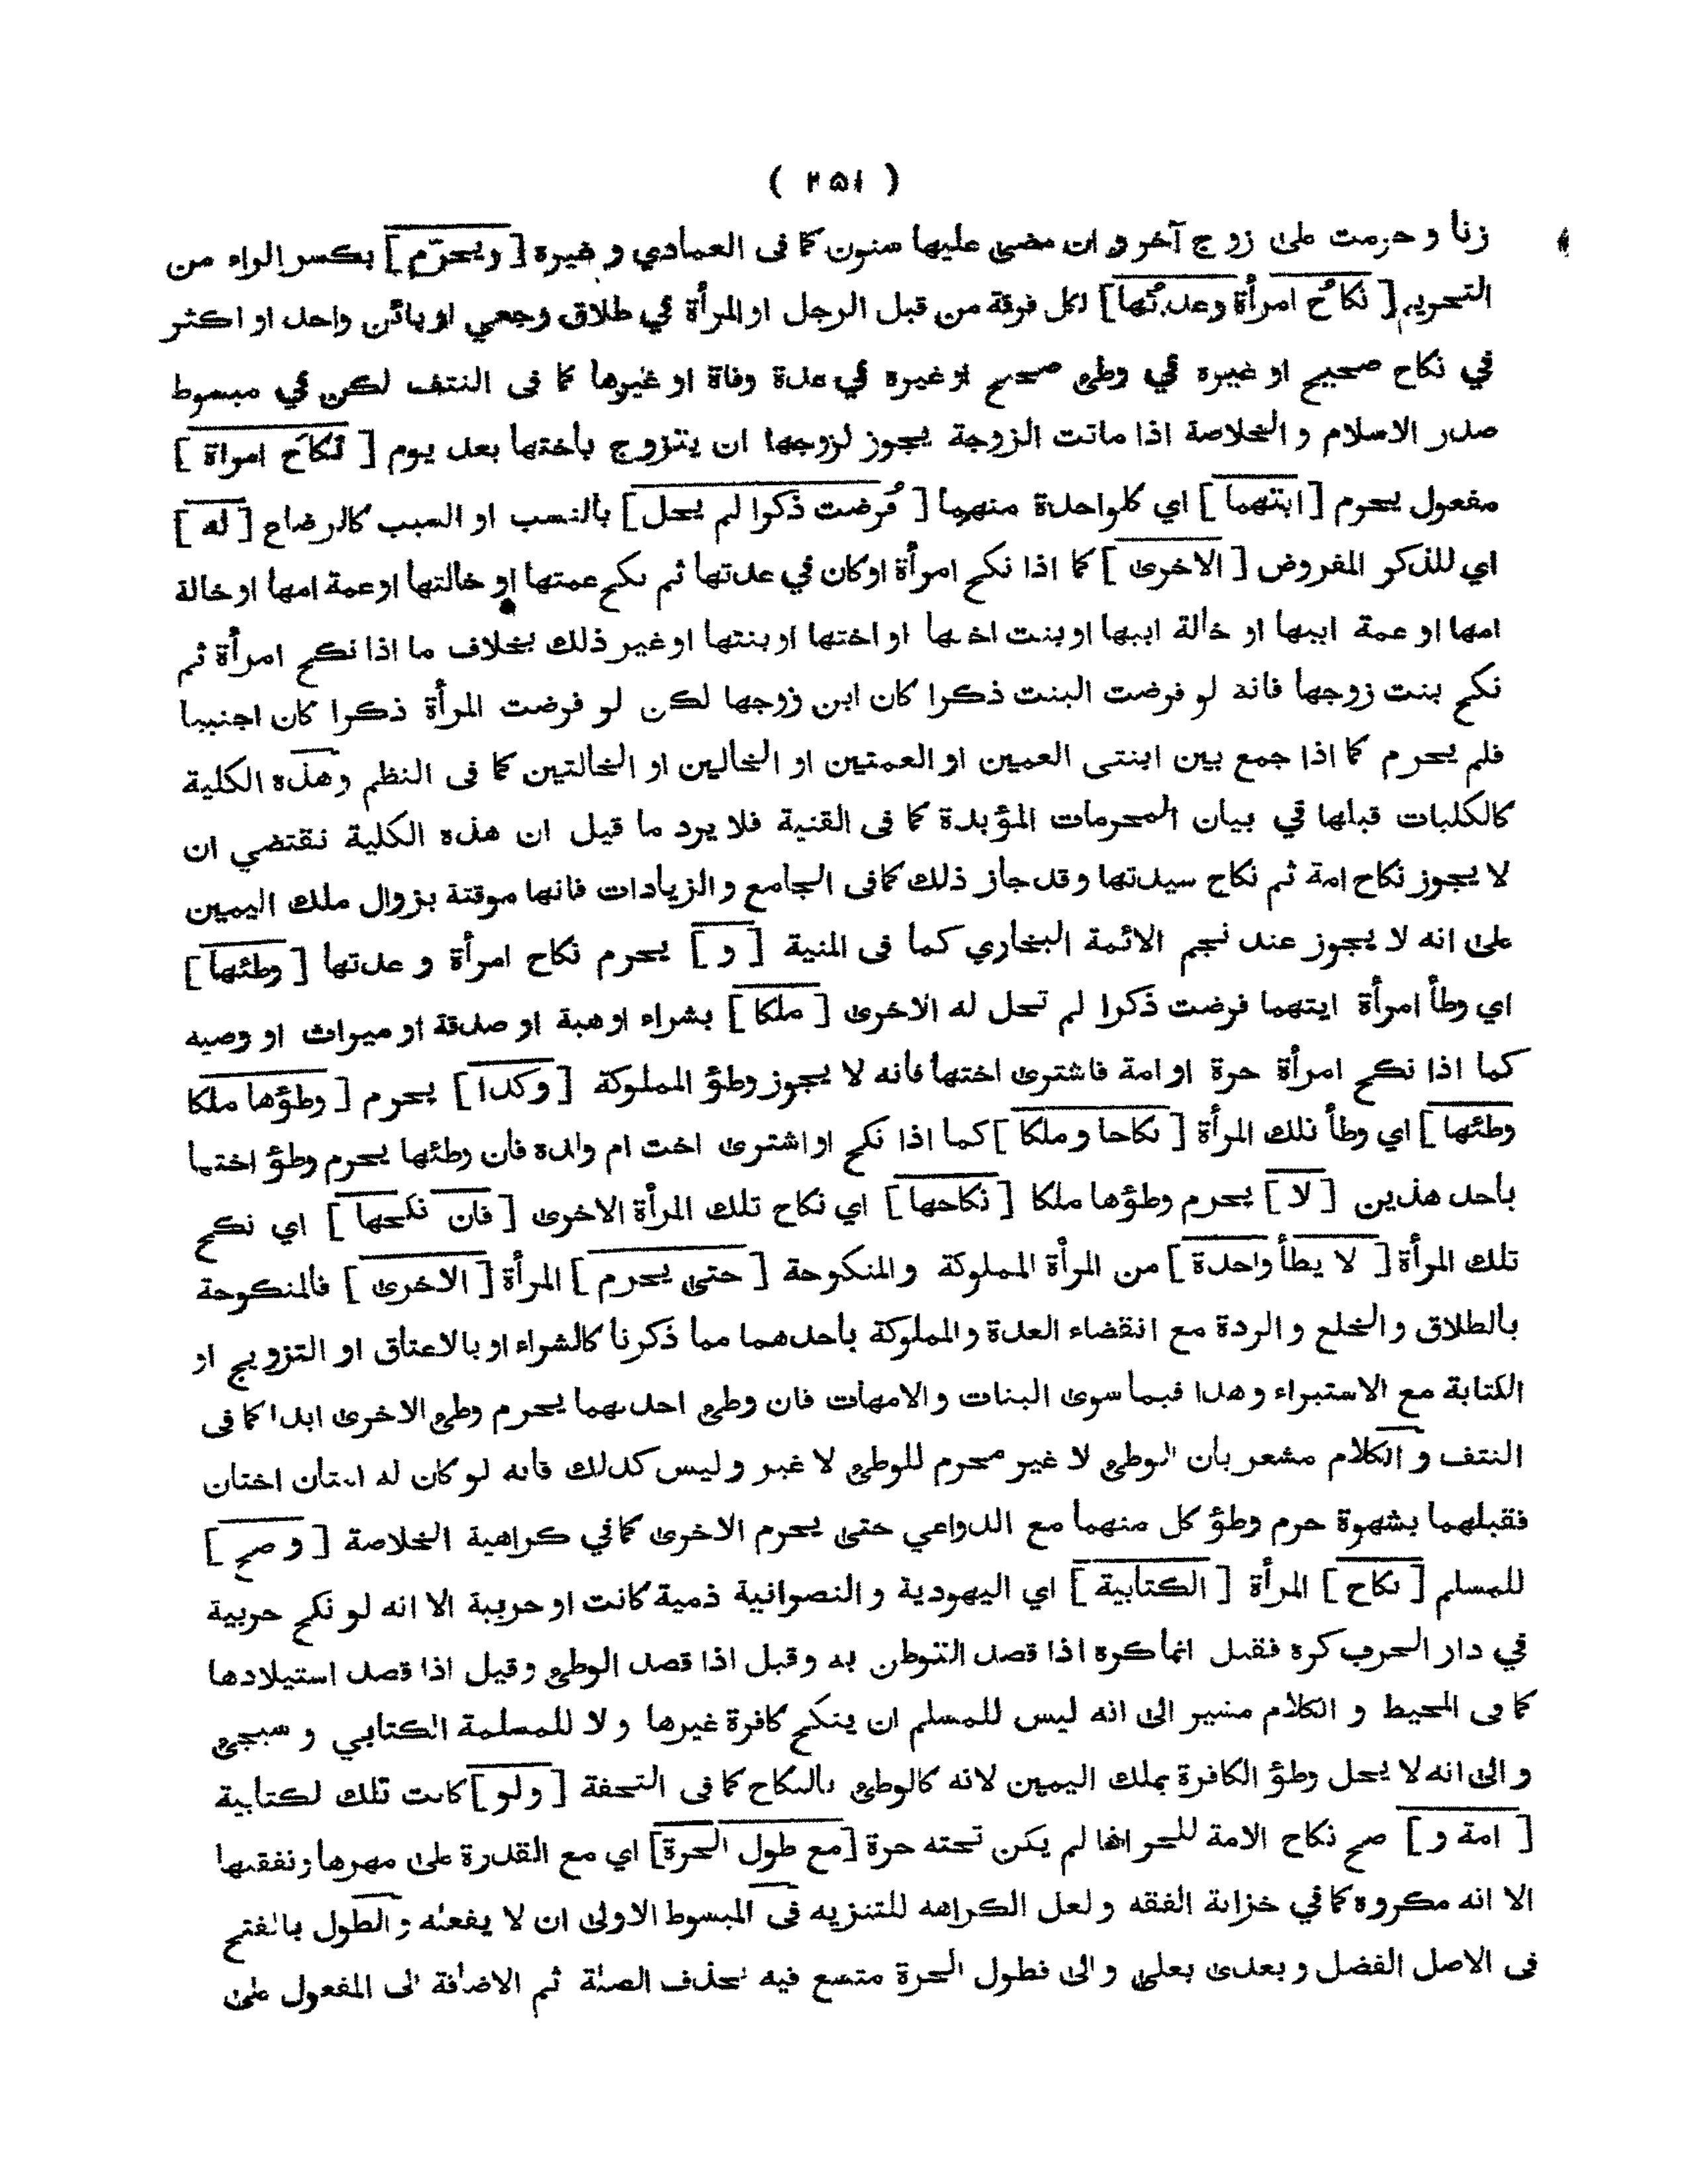 ( ٢٥١ )
زنا و حرمت على زوج آخر و ان مضى عليها سنون كما فى العمادي و غيره [ ويحرّم ] بكسر الراء من
التحريم [ نكاحُ امرأة وعدتُها ] لكل فرقة من قبل الرجل او المرأة في طلاق رجعي او بائن واحد او اكثر
في نكاح صحيح او غيره في وطى صحيح او غيره في عدة وفاة او غيرها كما فى النتف لكن في مبسوط
صدر الاسلام و الخلاصة اذا ماتت الزوجة يجوز لزوجها ان يتزوج باختها بعد يوم [ نكاحَ امرأة ]
مفعول يحرم [ ايتهما ] اي كلواحدة منهما [ فُرضت ذكرا لم يحل ] بالنسب او السبب كالرضاع [ له ]
اي للذكر المفروض [ الاخرى ] كما اذا نكح امرأة اوكان في عدتها ثم نكح عمتها او خالتها اوعمة امها اوخالة
امها او عمة ابيها او خالة ابيها اوبنت اخيها او اختها اوبنتها اوغير ذلك بخلاف ما اذا نكح امرأة ثم
نكح بنت زوجها فانه لو فرضت البنت ذكرا كان ابن زوجها لكن لو فرضت المرأة ذكرا كان اجنبيا
فلم يحرم كما اذا جمع بين ابنتى العمين او العمتين او الخالين او الخالتين كما فى النظم وهذه الكلية
كالكليات قبلها في بيان المحرمات المؤبدة كما فى القنية فلا يرد ما قيل ان هذه الكلية نقتضي ان
لا يجوز نكاح امة ثم نكاح سيدتها و قد جاز ذلك كمافى الجامع و الزيادات فانها موقتة بزوال ملك اليمين
على انه لا يجوز عند نجم الائمة البخاري كما فى المنية [ و ] يحرم نكاح امرأة و عدتها [ وطئها ]
اي وطأ امرأة ايتهما فرضت ذكرا لم تحل له الاخرى [ ملكا ] بشراء اوهبة او صدقة او ميراث او وصيه
كما اذا نكح امرأة حرة او امة فاشترى اختها فانه لا يجوز وطؤ المملوكة [ وكذا ] يحرم [ وطؤها ملكا
وطئها ] اي وطأ تلك المرأة [ نكاحا و ملكا ] كما اذا نكح او اشترى اخت ام ولده فان وطئها يحرم وطؤ اختها
باحد هذين [ لا ] يحرم وطؤها ملكا [ نكاحها ] اي نكاح تلك المرأة الاخرى [ فان نكحها ] اي نكح
تلك المرأة [ لا يطأ واحدة ] من المرأة المملوكة والمنكوحة [ حتى يحرم ] المرأة [ الاخرى ] فالمنكوحة
بالطلاق و الخلع و الردة مع انقضاء العدة و المملوكة باحدهما مما ذكرنا كالشراء او بالاعتاق او التزويج او
الكتابة مع الاستبراء و هذا فيما سوى البنات و الامهات فان وطى احدىهما يحرم وطى الاخرى ابدا كما فى
النتف و الكلام مشعر بان الوطى لا غير محرم للوطى لا غير و ليس كذلك فانه لو كان له امتان اختان
فقبلهما بشهوة حرم وطؤ كل منهما مع الدواعي حتى يحرم الاخرى كما في كراهية الخلاصة [ و صح ]
للمسلم [ نكاح ] المرأة [ الكتابية ] اي اليهودية و النصرانية ذمية كانت او حربية الا انه لو نكح حربية
في دار الحرب كره فقيل انما كره اذا قصد التوطن به و قيل اذا قصد الوطى و قيل اذا قصد استيلادها
كما فى المحيط و الكلام مشير الى انه ليس للمسلم ان ينكح كافرة غيرها و لا للمسلمة الكتابي و سيجى
و الى انه لا يحل وطؤ الكافرة بملك اليمين لانه كالوطى بالنكاح كما فى التحفة [ ولو ] كانت تلك لكتابية
[ امة و ] صح نكاح الامة للحر انما لم يكن تحته حرة [ مع طول الحرة ] اي مع القدرة على مهرها ونفقتها
الا انه مكروه كما في خزانة الفقه و لعل الكراهه للتنزيه فى المبسوط الاولى ان لا يفعله و الطول بالفتح
فى الاصل الفضل و بعدى بعلى و الى فطول الحرة متسع فيه بحذف الصلة ثم الاضافة الى المفعول على